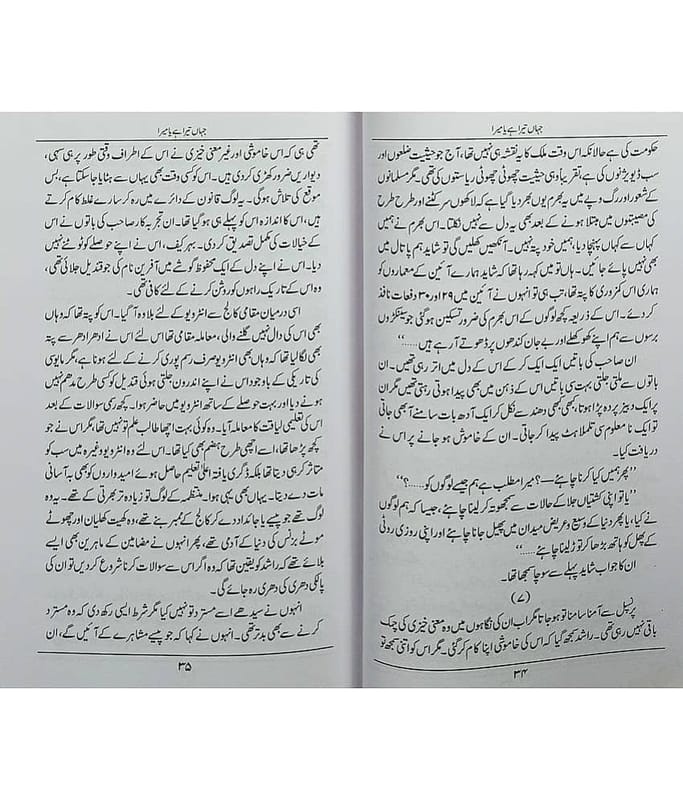 جہاں تیرا ہے یا میرا
حکومت کی ہے حالانکہ اس وقت ملک کا یہ نقشہ ہی نہیں تھا، آج جو حیثیت ضلعوں اور
سب ڈویژنوں کی ہے، تقریباً وہی حیثیت چھوٹی چھوٹی ریاستوں کی تھی۔ مگر مسلمانوں
کے شعور اور رگ و پے میں یہ بھرم یوں بھر دیا گیا ہے کہ لاکھوں سر کٹنے اور طرح طرح کی
مصیبتوں میں مبتلا ہونے کے بعد بھی یہ دل سے نہیں نکلتا۔ اس بھرم نے ہمیں
کہاں سے کہاں پہنچا دیا، ہمیں خود پتہ نہیں۔ آنکھیں کھلیں گی تو شاید ہم پاتال میں
بھی نہیں پائے جائیں۔ ہاں تو میں کہہ رہا تھا کہ شاید ہمارے آئین کے معماروں کو
ہماری اس کمزوری کا پتہ تھا، تب ہی تو انہوں نے آئین میں ۲۹ اور ۳۰ دفعات نافذ
کر دئے۔ اس کے ذریعہ کچھ لوگوں کے اس بھرم کی ضرور تسکین ہو گئی جو سینکڑوں
برسوں سے ہم اپنے کھوکھلے اور بے جان کندھوں پر ڈھوتے آ رہے ہیں......"
ان صاحب کی باتیں ایک ایک کر کے اس کے دل میں اتر رہی تھیں۔ ان
باتوں سے ملتی جلتی بہت سی باتیں اس کے ذہن میں بھی پیدا ہوتی رہتی تھیں مگر ان
پر ایک دبیز پردہ پڑا ہوتا، کبھی کبھی دھند سے نکل کر ایک آدھ بات سامنے آ بھی جاتی
تو ایک نامعلوم سی تلملاہٹ پیدا کر جاتی۔ ان کے خاموش ہو جانے پر اس نے
دریافت کیا۔
"پھر ہمیں کیا کرنا چاہئے—؟ میرا مطلب ہے ہم جیسے لوگوں کو......؟"
"یا تو اپنی کشتیاں جلا کے حالات سے سمجھوتہ کر لینا چاہئے، جیسا کہ ہم لوگوں
نے کیا، یا پھر دنیا کے وسیع و عریض میدان میں پھیل جانا چاہئے اور اپنی روزی روٹی
کے پھل کو ہاتھ بڑھا کر توڑ لینا چاہئے......"
ان کا جواب شاید پہلے سے سوچا سمجھا تھا۔
(۷)
پرنسپل سے آمنا سامنا تو ہو جاتا مگر اب ان کی نگاہوں میں وہ معنی خیزی کی چمک
باقی نہیں رہی تھی۔ راشد سمجھ گیا کہ اس کی خاموشی اپنا کام کر گئی۔ مگر اس کو اتنی سمجھ تو
۳۴
جہاں تیرا ہے یا میرا
تھی ہی کہ اس خاموشی اور غیر معنی خیزی نے اس کے اطراف وقتی طور پر ہی سہی،
دیواریں ضرور کھڑی کر دی ہیں۔ اس کو کسی وقت بھی یہاں سے ہٹایا جا سکتا ہے، بس
موقع کی تلاش ہوگی۔ یہ لوگ قانون کے دائرے میں رہ کر سارے غلط کام کرتے
ہیں، اس کا اندازہ اس کو پہلے ہی ہو گیا تھا۔ ان تجربہ کار صاحب کی باتوں نے اس
کے خیالات کی مکمل تصدیق کر دی۔ بہر کیف، اس نے اپنے حوصلے کو ٹوٹنے نہیں
دیا۔ اس نے اپنے دل کے ایک محفوظ گوشے میں آفرین نام کی جو قندیل جلائی تھی،
وہ اس کے تاریک راہوں کو روشن کرنے کے لئے کافی تھی۔
اسی درمیان مقامی کالج سے انٹرویو کے لئے بلاوہ آ گیا۔ اس کو پتہ تھا کہ وہاں
بھی اس کی دال نہیں گلنے والی، معاملہ مقامی تھا اس لئے اس نے ادھر ادھر سے پتہ
بھی لگا لیا تھا کہ وہاں بھی انٹرویو صرف رسم پوری کرنے کے لئے ہونا ہے، مگر مایوسی
کی تاریکی کے باوجود اس نے اپنے اندرون جلتی ہوئی قندیل کو کسی طرح مدھم نہیں
ہونے دیا اور بہت حوصلے کے ساتھ انٹرویو میں حاضر ہوا۔ کچھ رسمی سوالات کے بعد
اس کی تعلیمی لیاقت کا معاملہ آیا۔ وہ کوئی بہت اچھا طالب علم تو نہیں تھا، مگر اس نے جو
کچھ پڑھا تھا، اسے اچھی طرح ہضم بھی کیا تھا۔ اس لئے وہ انٹرویو وغیرہ میں سب کو
متاثر کر ہی دیتا تھا بلکہ ڈگری یافتہ اعلیٰ تعلیم حاصل ہوئے امیدواروں کو بھی بہ آسانی
مات دے دیتا۔ یہاں بھی یہی ہوا۔ منتظمہ کے لوگ تو زیادہ تر بھرتی کے تھے۔ یہ وہ
لوگ تھے جو پیسے یا جائداد دے کر کالج کے ممبر بنے تھے، وہ کھیت کھلیان اور چھوٹے
موٹے بزنس کی دنیا کے آدمی تھے، پھر انہوں نے مضامین کے ماہرین بھی ایسے
بلائے تھے کہ راشد کو یقین تھا کہ وہ اگر اس سے سوالات کرنا شروع کر دیں تو ان کی
پالکی دھری کی دھری رہ جائے گی۔
انہوں نے سیدھے اسے مسترد تو نہیں کیا مگر شرط ایسی رکھ دی کہ وہ مسترد
کرنے سے بھی بدتر تھی۔ انہوں نے کہا کہ جو پیسے مشاہرے کے آئیں گے، ان
۳۵